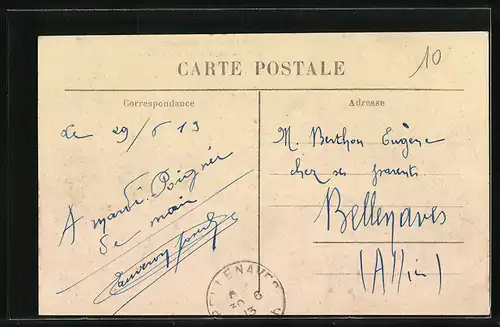 10
CARTE POSTALE
Correspondance
Adresse
Le 29/6 13
A mardi. Poignée
de main
M. Berthon Eugène
chez ses parents
Bellenaves
(Allier)
BELLENAVES
6
13